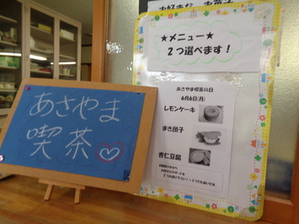 あさやま
喫茶♡
★メニュー★
2つ選べます!
あさやま喫茶の日
6月6日(月)
レモンケーキ
まき団子
杏仁豆腐